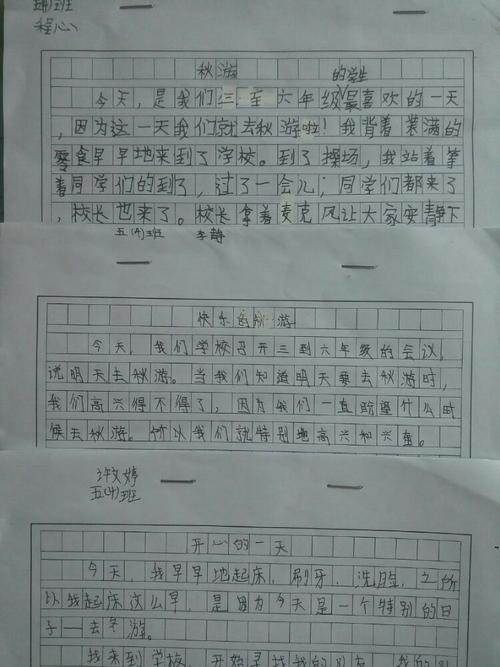 班
程心
秋游
的学生
今天，是我们三至六年级最喜欢的一天
，因为这一天我们就去秋游啦！我背着装满的
零食早早地来到了学校。到了操场，我站着等
着同学们的到了，过了一会儿；同学们都来了
，校长也来了。校长拿着麦克风让大家安静下
五(4)班 李静
快乐的秋游
今天，我们学校召开三到六年级的会议，
说明天去秋游。当我们知道明天要去秋游时，
我们高兴得不得了，因为我们一直盼望什么时
候去秋游。所以我们就特别地高兴和兴奋。
许文婷
五(4)班
开心的一天
今天，我早早地起床，刷牙，洗脸，之所
以我起床这么早，是因为今天是一个特别的日
子——去冬游。
我来到学校，开始寻找我的朋友，我们